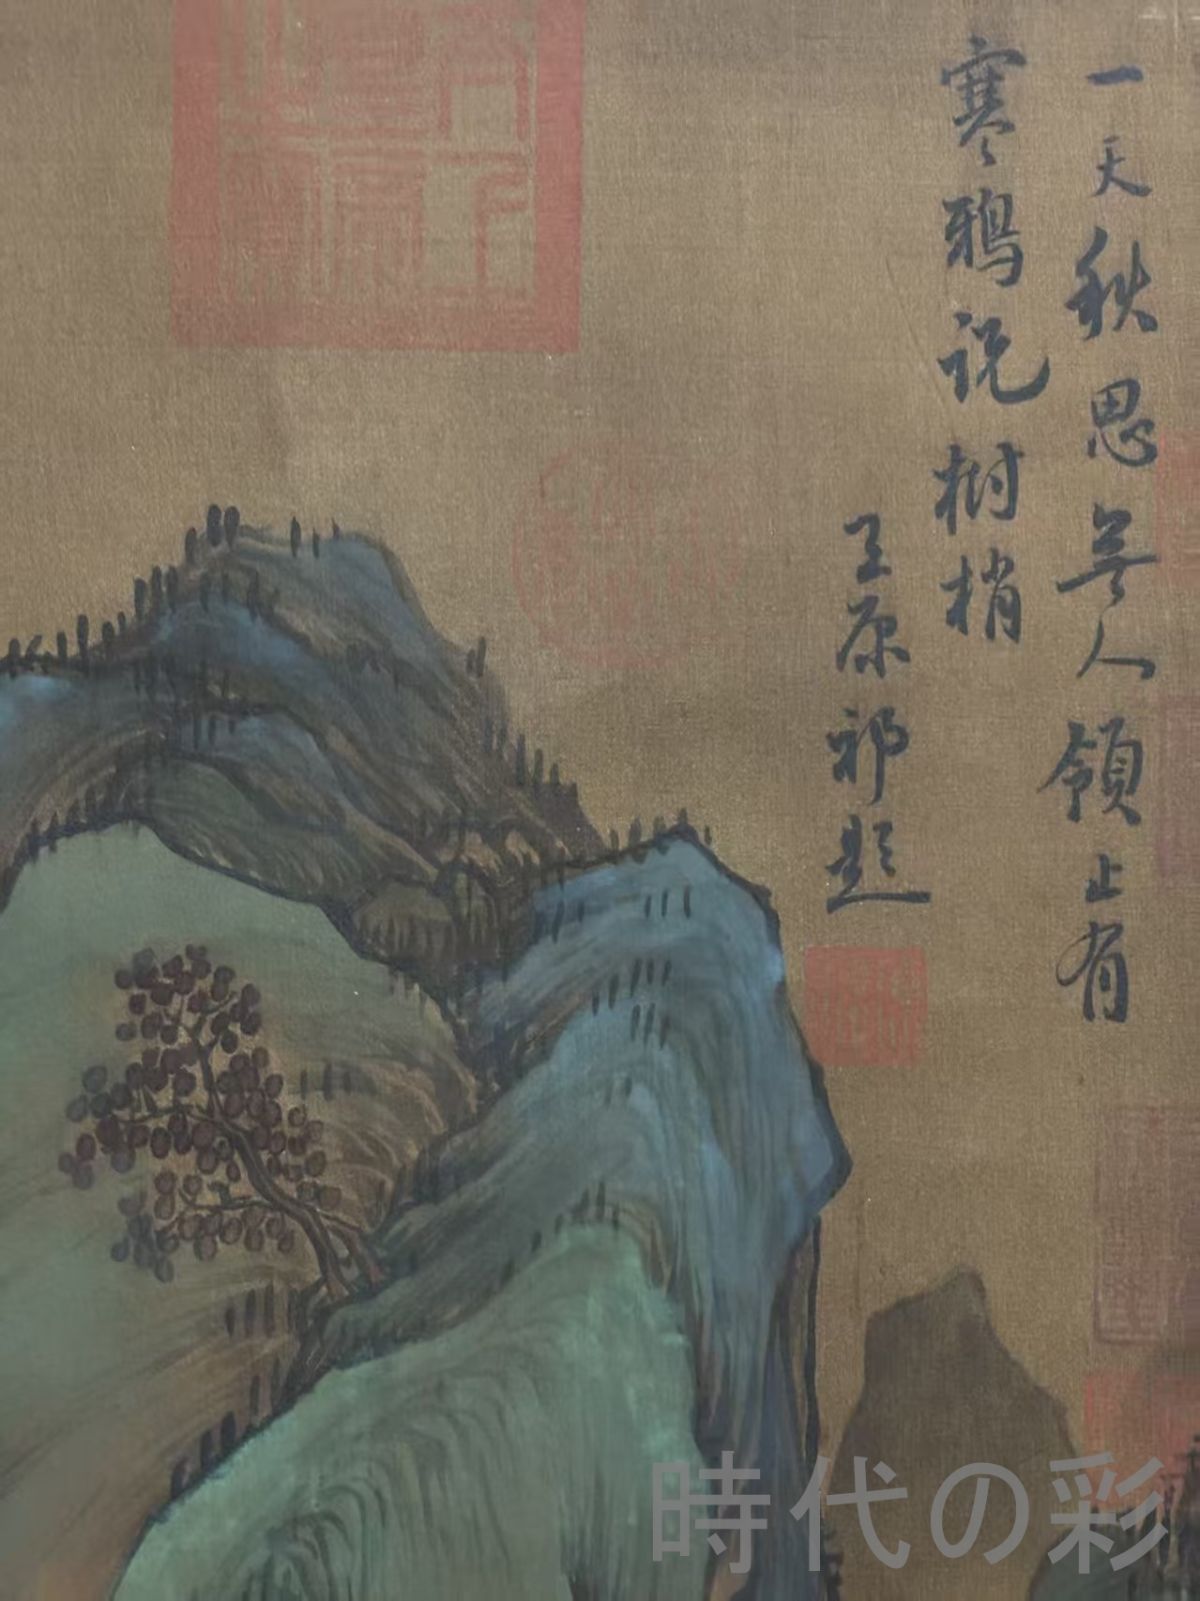 一天秋思無人領止有
寒鴉説樹梢
王原祁題
時代の彩